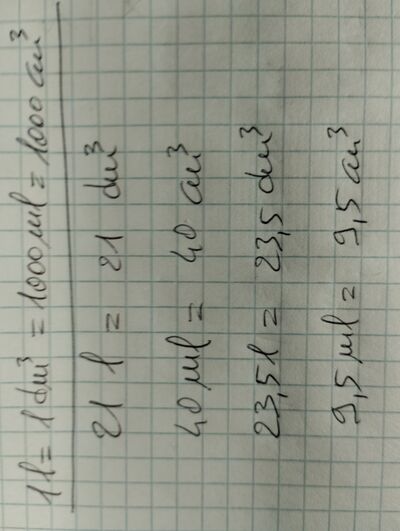 1l = 1 dm³ = 1000 ml = 1000 cm³
21 l = 21 dm³
40 ml = 40 cm³
23,5 l = 23,5 dm³
9,5 ml = 9,5 cm³